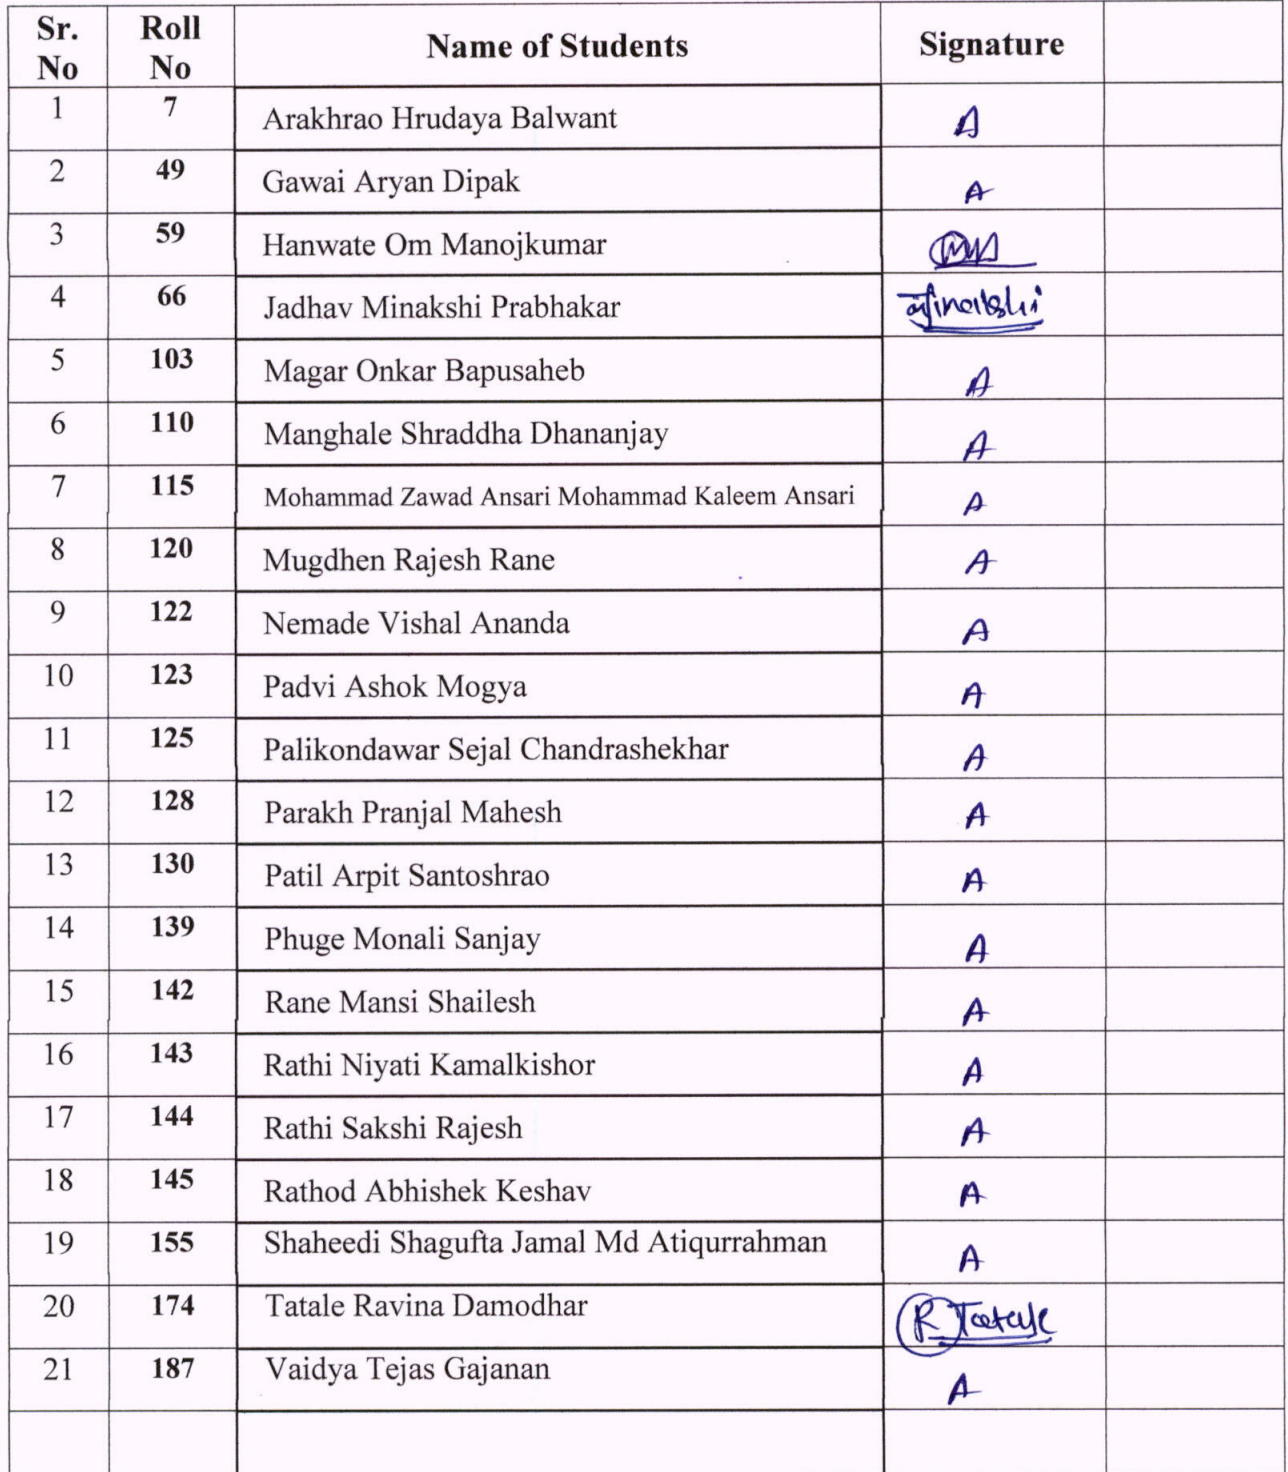 Sr. No Roll No Name of Students Signature
1 7 Arakhrao Hrudaya Balwant A
2 49 Gawai Aryan Dipak A
3 59 Hanwate Om Manojkumar
4 66 Jadhav Minakshi Prabhakar Minakshi
5 103 Magar Onkar Bapusaheb A
6 110 Manghale Shraddha Dhananjay A
7 115 Mohammad Zawad Ansari Mohammad Kaleem Ansari A
8 120 Mugdhen Rajesh Rane A
9 122 Nemade Vishal Ananda A
10 123 Padvi Ashok Mogya A
11 125 Palikondawar Sejal Chandrashekhar A
12 128 Parakh Pranjal Mahesh A
13 130 Patil Arpit Santoshrao A
14 139 Phuge Monali Sanjay A
15 142 Rane Mansi Shailesh A
16 143 Rathi Niyati Kamalkishor A
17 144 Rathi Sakshi Rajesh A
18 145 Rathod Abhishek Keshav A
19 155 Shaheedi Shagufta Jamal Md Atiqurrahman A
20 174 Tatale Ravina Damodhar R Tatale
21 187 Vaidya Tejas Gajanan A